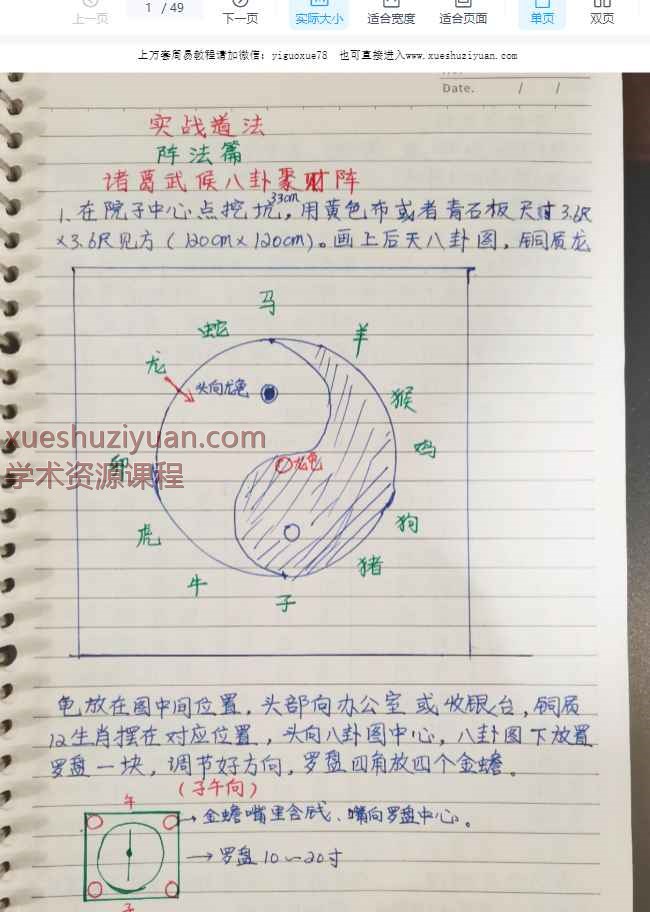 上一页
1 / 49
下一页
实际大小
适合宽度
适合页面
单页
双页
上万套周易教程请加微信：yiguoxue78 也可直接进入www.xueshuziyuan.com
Date. / /
实战道法
阵法篇
诸葛武候八卦聚财阵
33cm
1. 在院子中心点挖坑，用黄色布或者青石板尺寸3.6尺
×3.6尺见方（120cm×120cm）。画上后天八卦图，铜质龙
马
蛇
羊
龙
头向龙龟
猴
xueshuziyuan.com
鸡
龙龟
学术资源课程
卯
狗
虎
猪
牛
子
龟放在图中间位置，头部向办公室或收银台，铜质
12生肖摆在对应位置，头向八卦图中心，八卦图下放置
罗盘一块，调节好方向，罗盘四角放四个金蟾。
（子午向）
午
金蟾嘴里含钱、嘴向罗盘中心。
罗盘10～20寸
子